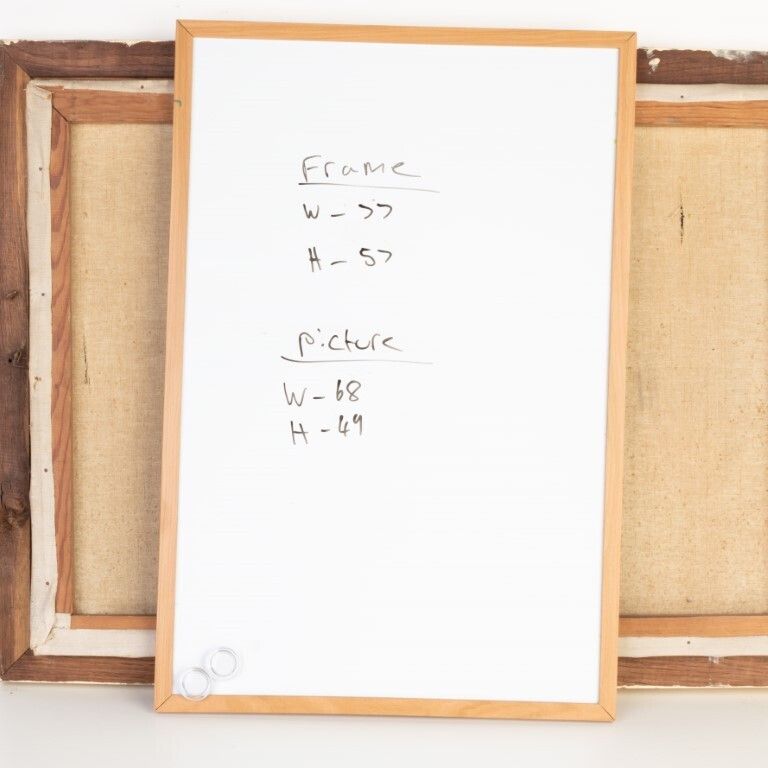 Frame
W - 77
H - 57
picture
W - 68
H - 49